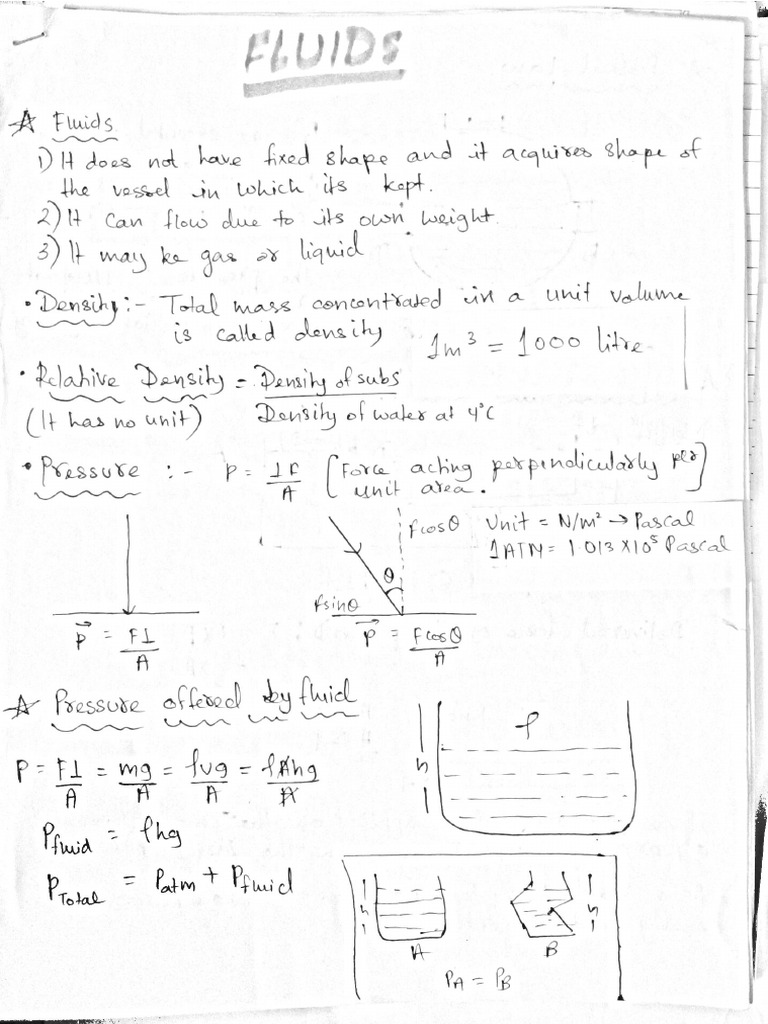 FLUIDS
☆ Fluids
1) It does not have fixed shape and it acquires shape of
the vessel in which its kept.
2) It can flow due to its own weight.
3) It may be gas or liquid
• Density :- Total mass concentrated in a unit volume
is called density
1m³ = 1000 litre
• Relative Density = Density of subs / Density of water at 4°C
(It has no unit)
• Pressure :- P = ⊥F/A [Force acting perpendicularly per
unit area.]
Unit = N/m² → Pascal
1ATM = 1.013 X 10⁵ Pascal
fcosθ
θ
fsinθ
P⃗ = F⊥/A
P⃗ = Fcosθ/A
☆ Pressure offered by fluid
ρ
h
P = F⊥/A = mg/A = ρvg/A = ρAhg/A
Pfluid = ρhg
PTotal = Patm + Pfluid
h
h
A
B
PA = PB